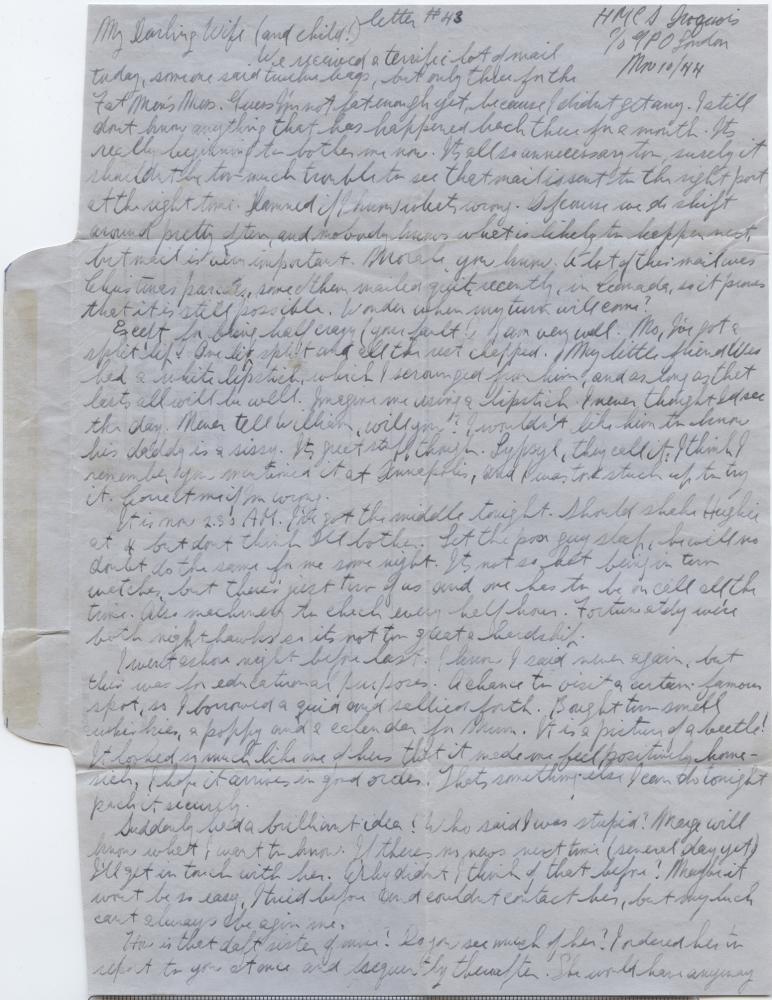 letter #43
HMCS Iroquois
c/o GPO London
Nov 10/44
My Darling Wife (and child!)
We received a terrific lot of mail
today, someone said twelve bags, but only three for the
Fat Men's Mess. Guess I'm not fat enough yet, because I didn't get any. I still
dont know anything that has happened back there for a month. Its
really beginning to bother me now. Its all so unnecessary too, surely it
shouldn't be too much trouble to see that mail is sent to the right port
at the right time. Damned if I know what's wrong. Of course we do shift
around pretty often, and nobody knows what is likely to happen next,
but mail is very important. Morale, you know. A lot of this mail was
Christmas parcels, some of them mailed quite recently, in Canada, so it proves
that it is still possible. Wonder when my turn will come?
Except for being half crazy (your fault!) I am very well. No, I've got a
split lip! One lip split and all the rest chapped. My little friend Wes
had a white lipstick, which I scrounged from him, and as long as that
lasts all will be well. Imagine me using a lipstick. I never thought I'd see
the day. Never tell William, will you? I wouldn't like him to know
his daddy is a sissy. Its great stuff, though. Lypsyl, they call it; I think I
remember you mentioned it at Annapolis, and I was too stuck up to try
it. Correct me if I'm wrong.
It is now 2.30 A.M. I've got the middle tonight. Should shake Hughie
at 4 but dont think I'll bother. Let the poor guy sleep, he will no
doubt do the same for me some night. Its not so bad being in two
watches, but there's just two of us and one has to be on call all the
time. Also machinery to check every half hour. Fortunately we're
both nighthawks so its not too great a hardship.
I went ashore night before last. I know I said never again, but
this was for educational purposes. A chance to visit a certain famous
spot, so I borrowed a quid and sallied forth. Bought two small
whiskies, a poppy and a calendar for Mum. It is a picture of a beetle!
It looked so much like one of hers that it made me feel positively home-
sick. I hope it arrives in good order. Thats something else I can do tonight
pack it securely.
Suddenly had a brilliant idea! Who said I was stupid? Marge will
know what I want to know. If there's no news next time (several days yet)
I'll get in touch with her. Why didn't I think of that before! Maybe it
wont be so easy, I tried before and couldnt contact her, but my luck
cant always be agin me.
How is that daft sister of mine? Do you see much of her? I ordered her to
report to you at once and frequently thereafter. She would have anyway